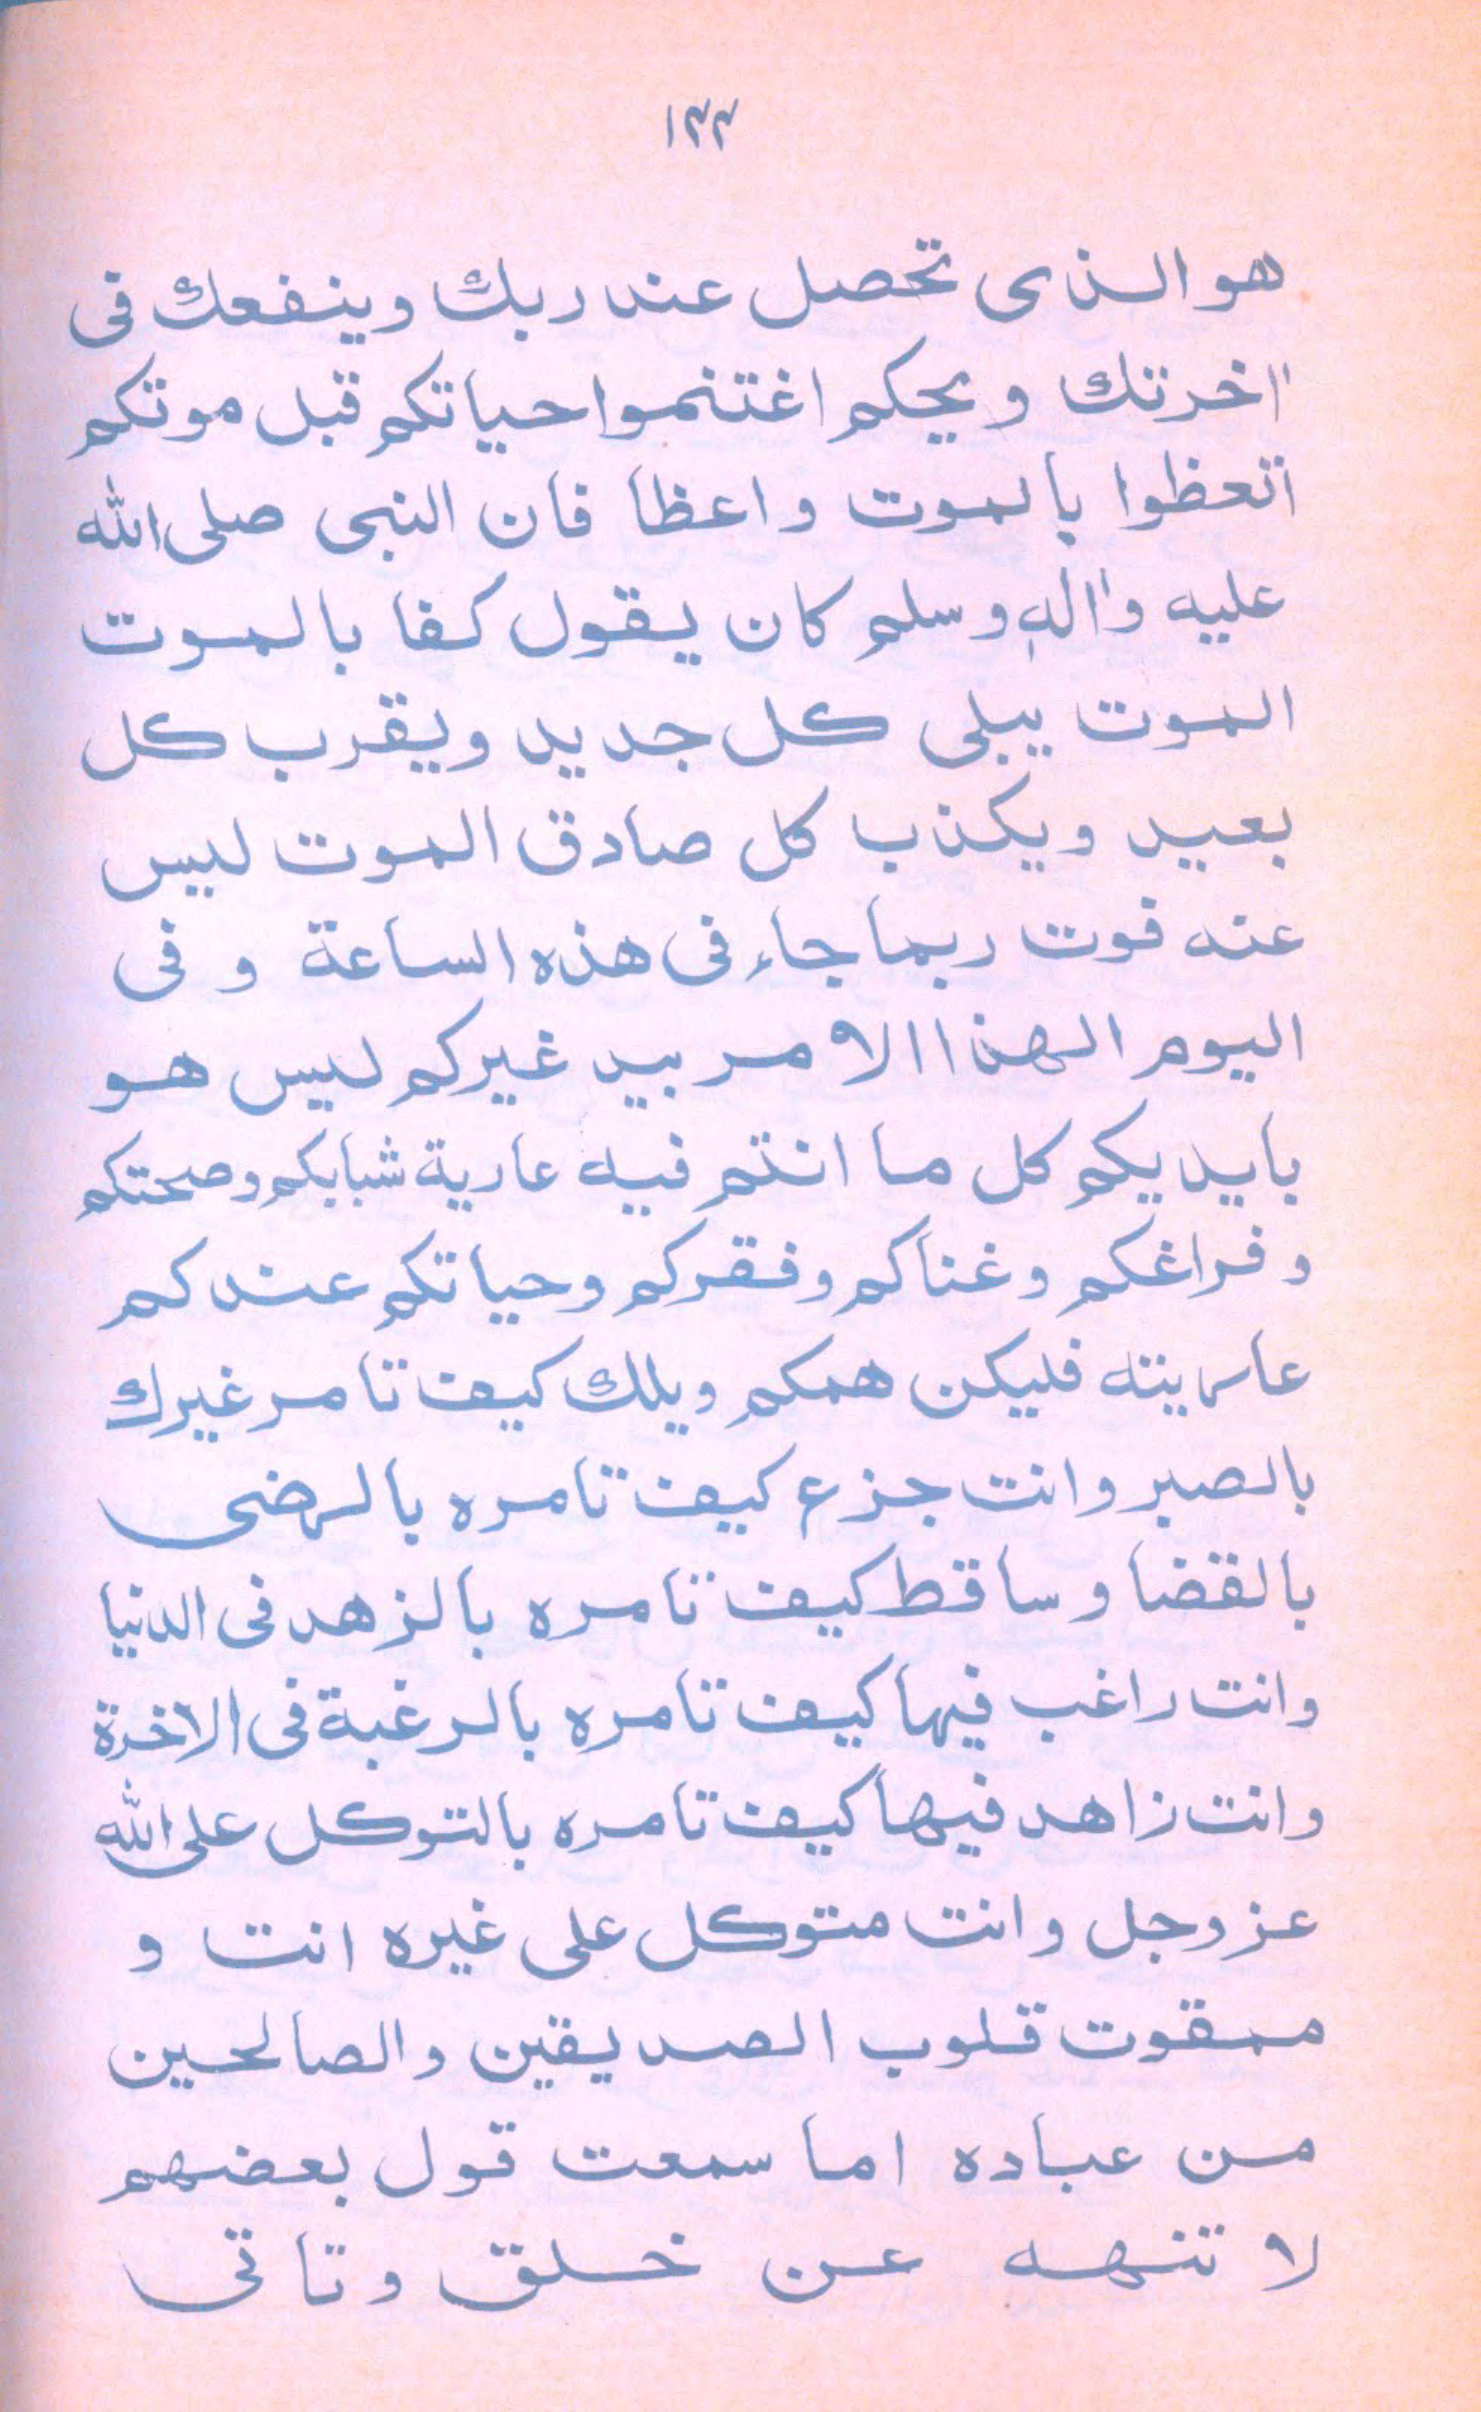 ١٣٣
هو الذى تحصل عند ربك وينفعك فى
اٰخرتك ويحكم اغتنموا حياتكم قبل موتكم
اتعظوا بالموت واعظا فان النبى صلى الله
عليه واٰله وسلم كان يقول كفا بالموت
الموت يبلى كل جديد ويقرب كل
بعيد ويكذب كل صادق الموت ليس
عنه فوت ربما جاء فى هذه الساعة و فى
اليوم الهذا الامر بيد غيركم ليس هو
بايديكم كل ما انتم فيه عارية شبابكم وصحتكم
وفراغكم وغناكم وفقركم وحياتكم عندكم
عاريته فليكن همكم ويلك كيف تامر غيرك
بالصبر وانت جزع كيف تامره بالرضى
بالقضا وساقط كيف تامره بالزهد فى الدنيا
وانت راغب فيها كيف تامره بالرغبة فى الاخرة
وانت زاهد فيها كيف تامره بالتوكل على الله
عز وجل وانت متوكل على غيره انت و
ممقوت قلوب الصديقين والصالحين
من عباده اما سمعت قول بعضهم
لا تنهه عن خلق وتاتى